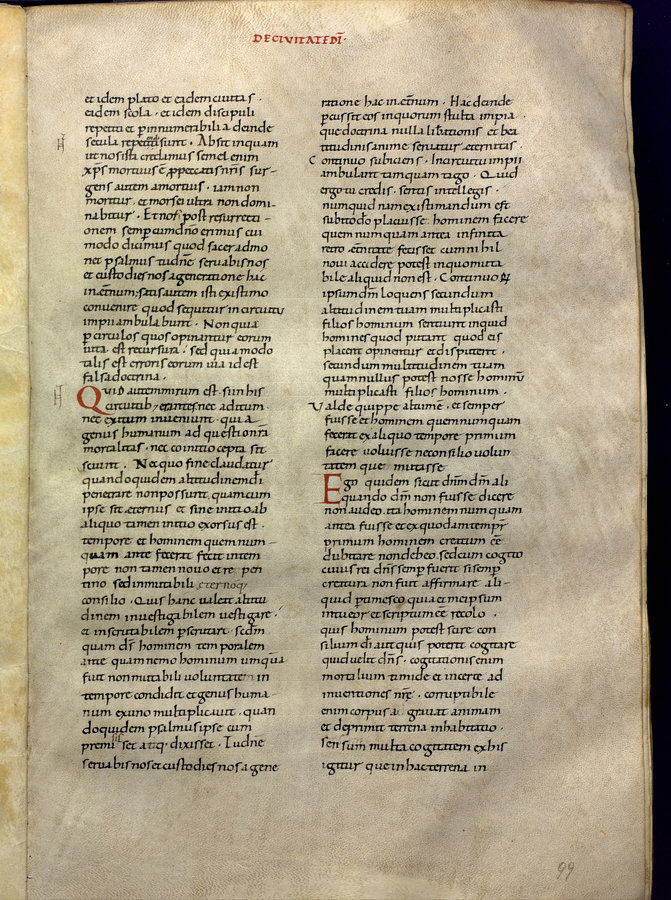 DE CIVITATE DĪ·
et idem plato et eadem ciuitas ·
eadem scola · et idem discipuli
repetiti et p innumerabilia deinde
secula repetendi sunt · Absit inquam
ut nos ista credamus semel enim
xp̄s mortuus ē p peccatis nr̄is sur-
gens autem a mortuis · iam non
moritur, et mors ei ultra non domi-
nabitur · Et nos post resurrecti-
onem semp cum dn̄o erimus cui
modo dicimus quod sacer admo
net psalmus tu dn̄e seruabis nos
et custodies nos a generatione hac
in et̄num; satis autem isti existimo
conuenire quod sequitur in circuitu
impii ambulabunt · Non quia
p circulos quos opinantur eorum
uita est recursura · sed quia modo
talis est erroris eorum uia id est
falsa doctrina ·
Quid autem mirum est si in his
circuitib; errantes nec aditum
nec exitum inueniunt · quia
genus humanum atq; esti onra
mortalitas · nec initio cepta sit
sciunt · Nec quo fine claudatur
quando quidem altitudinem dī
penetrare non possunt, qua cum
ipse sit eternus et sine initio ab
aliquo tamen initio exorsus est ·
tempore et hominem quem num-
quam ante fecerat fecit in tem
pore non tamen nouo et repen
tino sed inmutabili eternoq;
consilio · Quis hanc ualeat altitu
dinem inuestigabilem uestigare ·
et inscrutabilem pscrutari · sedm
quam dſ hominem temporalem
ante quam nemo hominum umquā
fuit non mutabili uoluntate in
tempore condidit et genus huma-
num ex uno multiplicauit · quan
do quidem psalmus ipse cum
premisisset atq; dixisset · Tu dn̄e
seruabis nos et custodies nos a gene
ratione hac in et̄num · Hac deinde
pcussit eos in quorum stulta impia
que doctrina nulla libationis et bea
titudinis anime seruatur eternitas ·
Continuo subiciens · In circuitu impii
ambulant tamquam tago · Quid
ergo tu credis, sentis intellegis ·
numquid nam existimandum est
subito do placuisse hominem facere
quem numquam antea infinita
retro et̄nitate fecisset cum nihil
noui accidere potest in quo muta
bile aliquid non est · Continuo
ipsum dm̄ loquens secundum
altitudinem tuam multiplicasti
filios hominum sentiunt inquid
homines quod putant quod eis
placent opinentur et disputent ·
secundum multitudinem tuam
quam nullus potest nosse hominū
multiplicasti filios hominum ·
Valde quippe altum ē · et semper
fuisse et hominem quem numquam
fecerat ex aliquo tempore primum
facere uoluisse nec onsilio uolun
tatem que mutasse
Ego quidem sicut dn̄m dm̄ ali
quando dm̄ non fuisse dicere
non audeo · ita hominem numquam
antea fuisse et ex quodam tempr̄
primum hominem creatum eē
dubitare non debeo, sed cum cogito
cuius rei dn̄s semp fuerit si semp
creatura non fuit affirmare ali-
quid ptimesco quia et me ipsum
intueor et scriptum eē recolo ·
quis hominum potest scire con
silium dī aut quis poterit cogitare
quid uelit dn̄s · cogitationis enim
mortalium timide et incerte ad
inuentiones nr̄e · corruptibile
enim corpus a gravat animam
et deprimit terrena inhabitatio ·
sensum multa cogitatem ex his
igitur que in hac terrena in
99